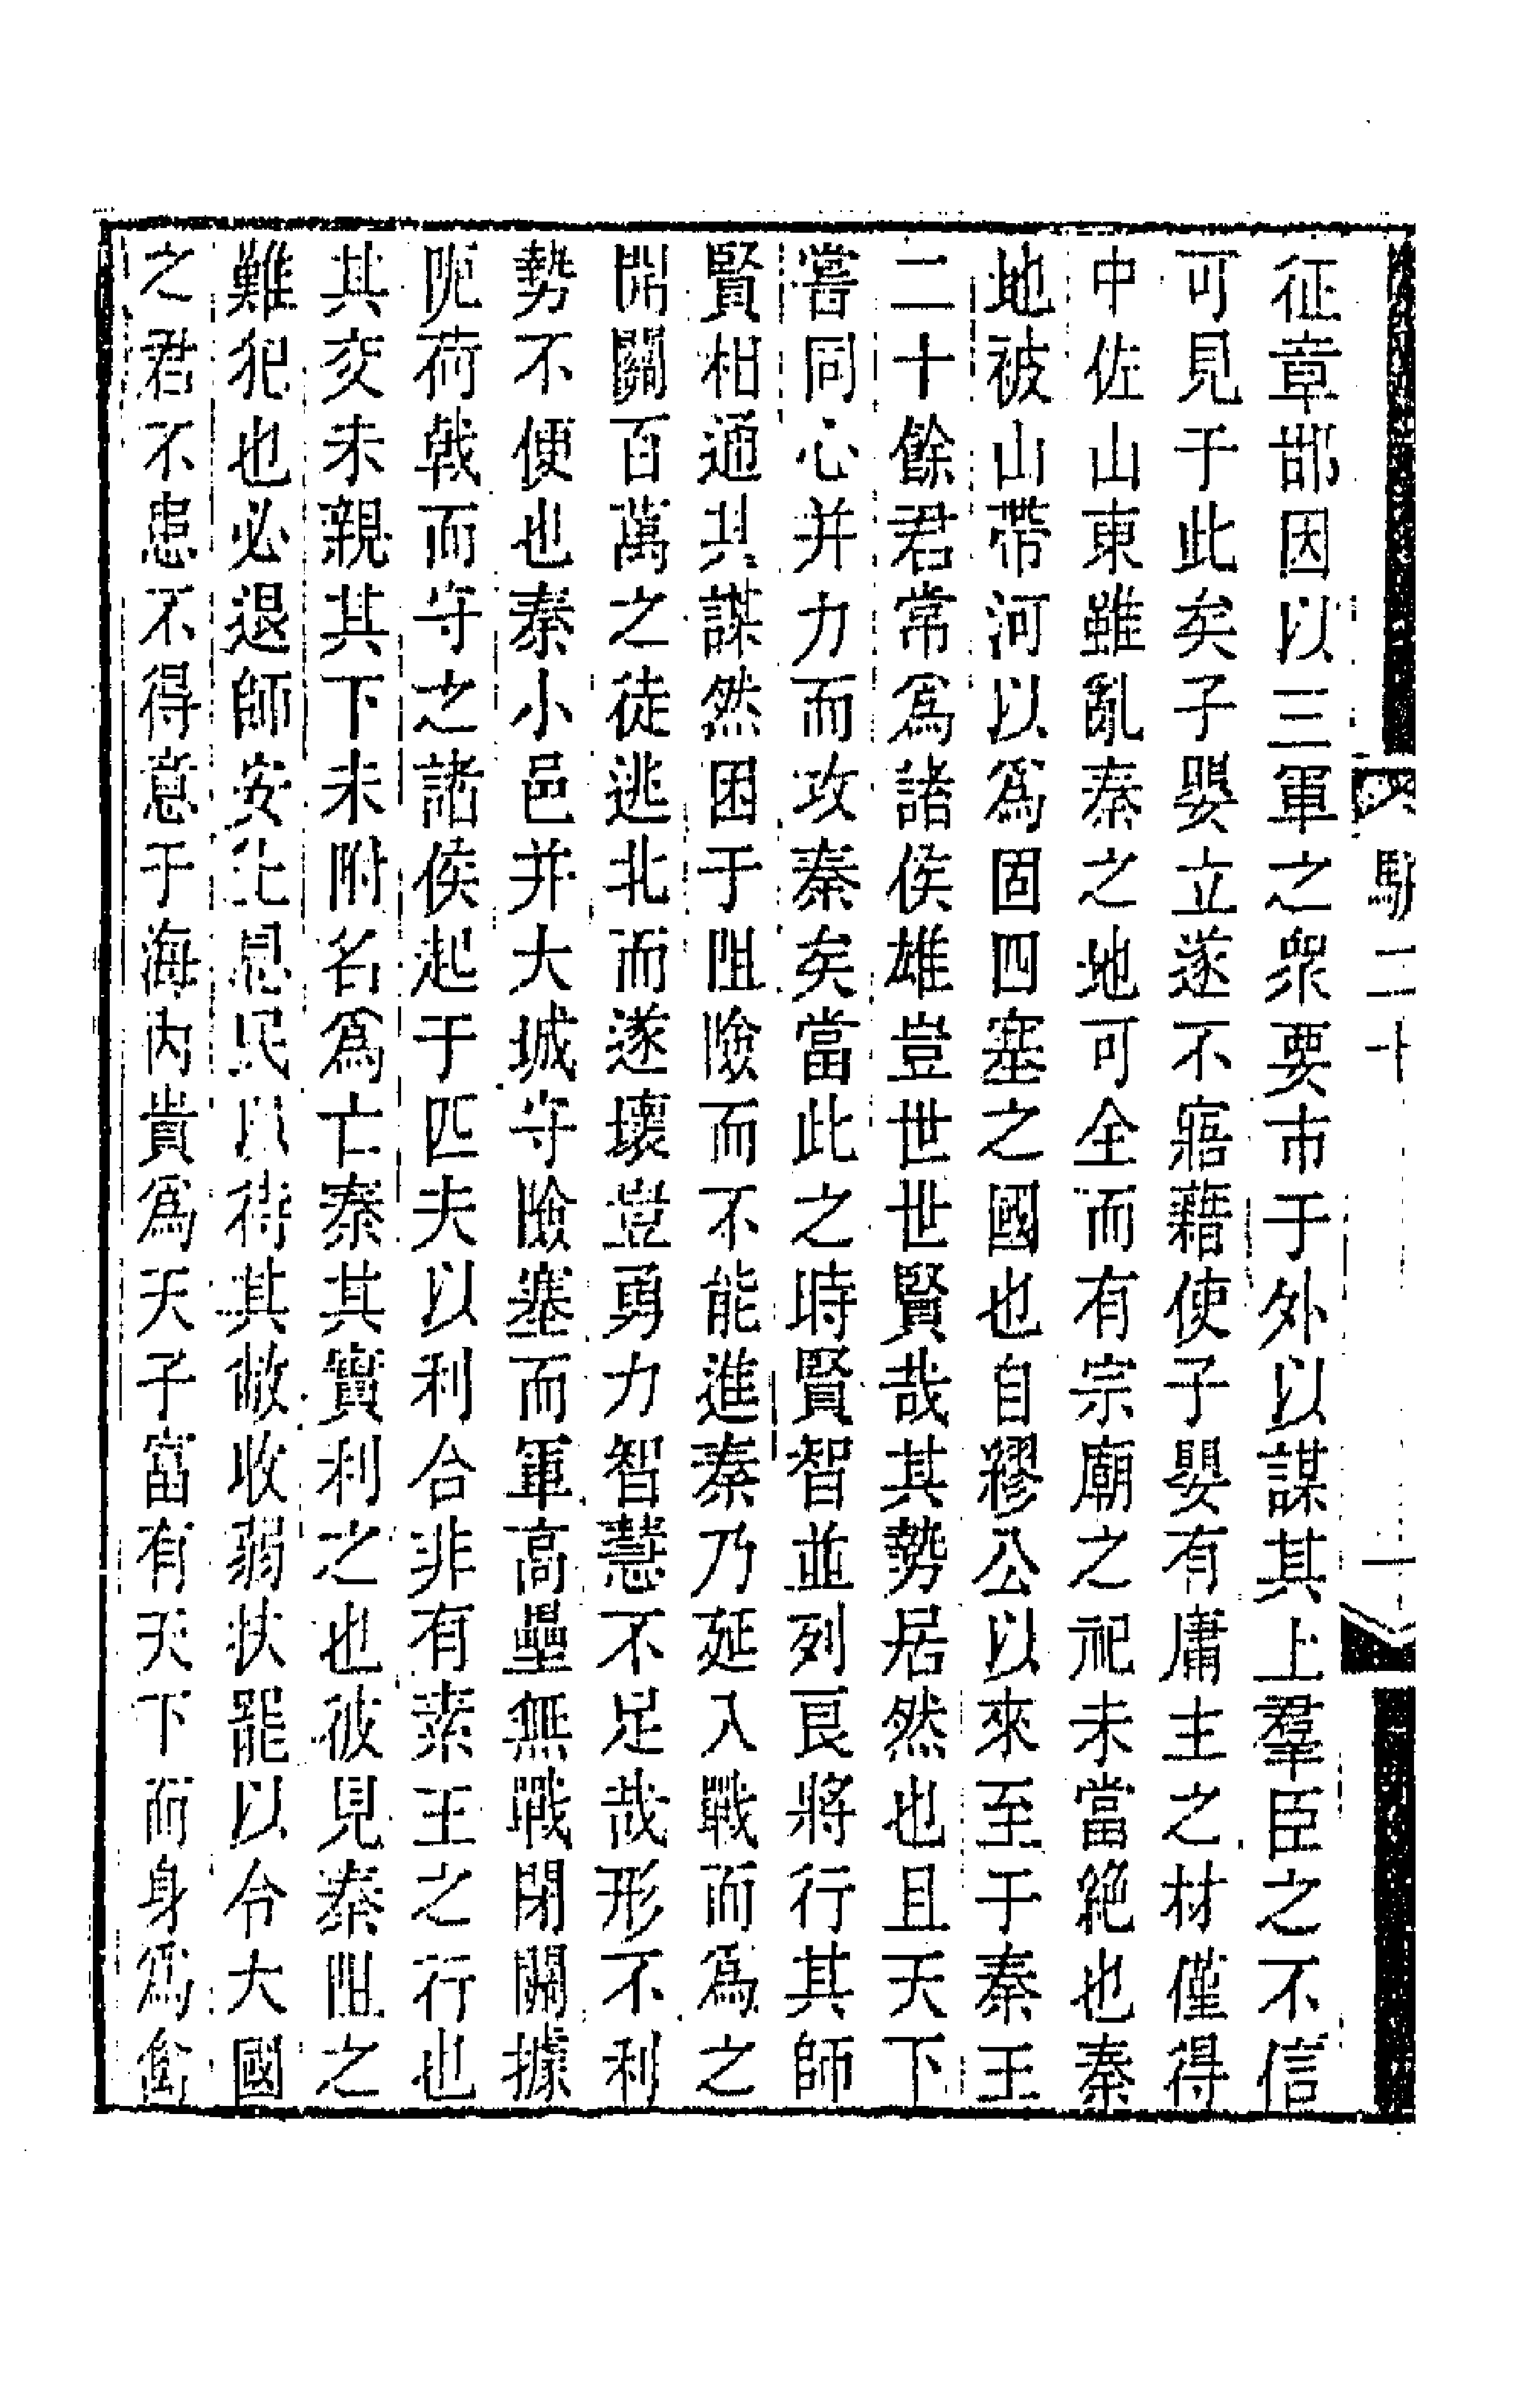 征章邯因以三軍之衆要市于外以謀其上羣臣之不信
可見于此矣子嬰立遂不寤藉使子嬰有庸主之材僅得
中佐山東雖亂秦之地可全而有宗廟之祀未當絶也秦
地被山帶河以爲固四塞之國也自繆公以來至于秦王
二十餘君常爲諸侯雄豈世世賢哉其勢居然也且天下
嘗同心并力而攻秦矣當此之時賢智並列良將行其師
賢相通其謀然困于阻險而不能進秦乃延入戰而爲之
開關百萬之徒逃北而遂壞豈勇力智慧不足哉形不利
勢不便也秦小邑并大城守險塞而軍高壘無戰閉關據
阨荷戟而守之諸侯起于匹夫以利合非有素王之行也
其交未親其下未附名爲亡秦其實利之也彼見秦阻之
難犯也必退師安土息民以待其敝收弱扶罷以令大國
之君不患不得意于海内貴爲天子富有天下而身爲禽